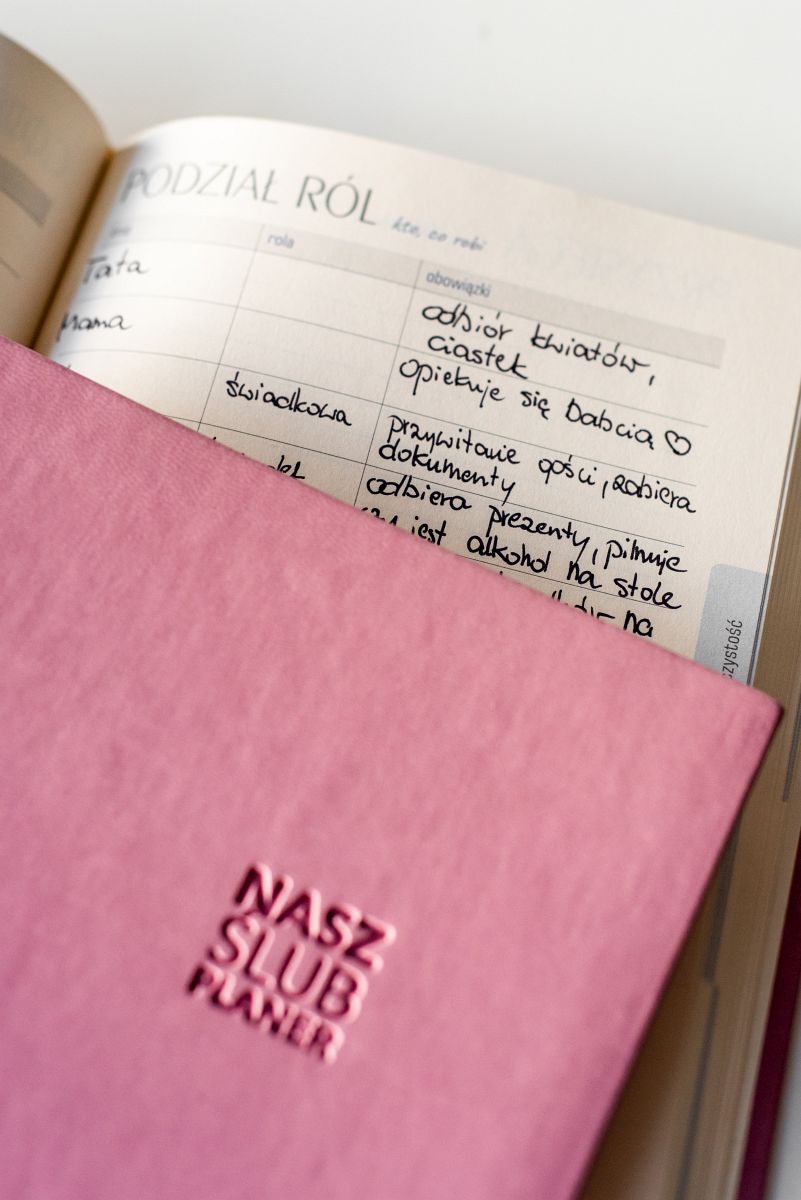 PODZIAŁ RÓL kto, co robi
imię rola obowiązki
Tata odbiór kwiatów,
ciastek
Mama opiekuje się babcią ♡
świadkowa przywitanie gości, zabiera
dokumenty
odbiera prezenty, pilnuje
czy jest alkohol na stole
na
NASZ
ŚLUB
PLANER